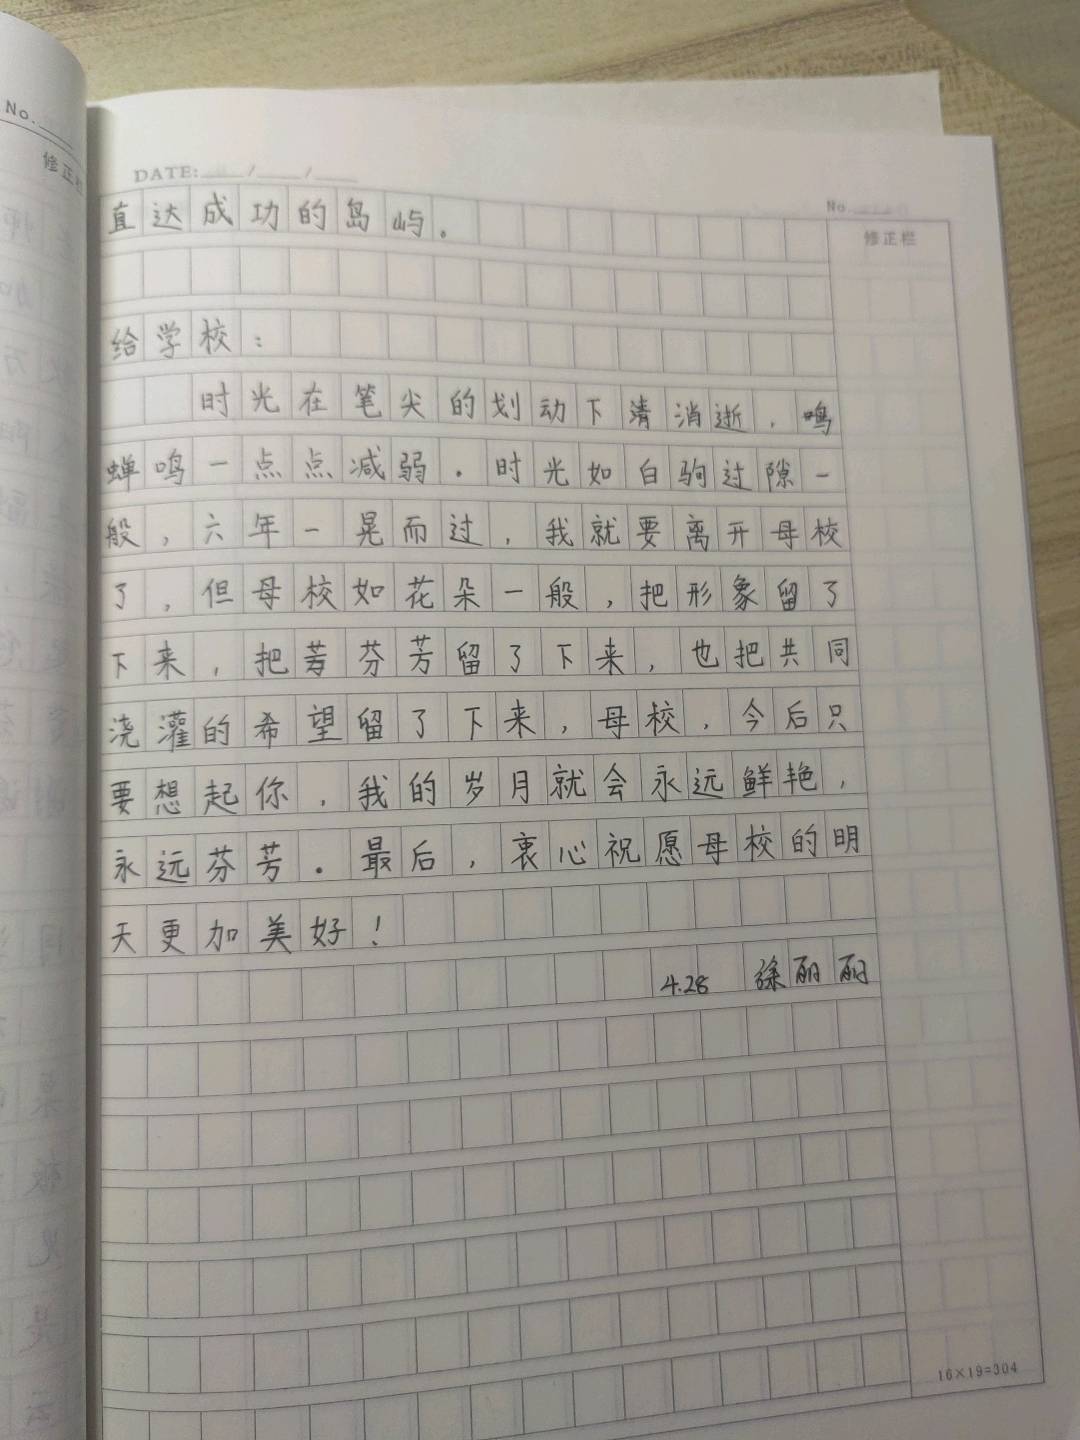 No.
修正栏
DATE: / /
No.
修正栏
直达成功的岛屿。
给学校：
时光在笔尖的划动下清消逝，鸣
蝉鸣一点点减弱。时光如白驹过隙一
般，六年一晃而过，我就要离开母校
了，但母校如花朵一般，把形象留了
下来，把芬芳留了下来，也把共同
浇灌的希望留了下来，母校，今后只
要想起你，我的岁月就会永远鲜艳，
永远芬芳。最后，衷心祝愿母校的明
天更加美好！
4.28 徐丽丽
16×19=304